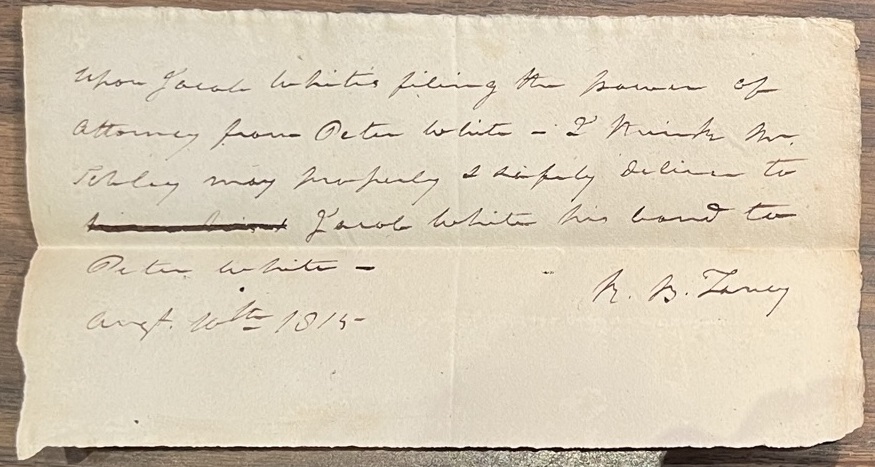 Upon Jacob White's filing the power of
Attorney from Peter White - I think Mr.
Schley may properly & safely deliver to
Jacob White his bond to
Peter White -
R. B. Taney
Augt. 10th 1815-